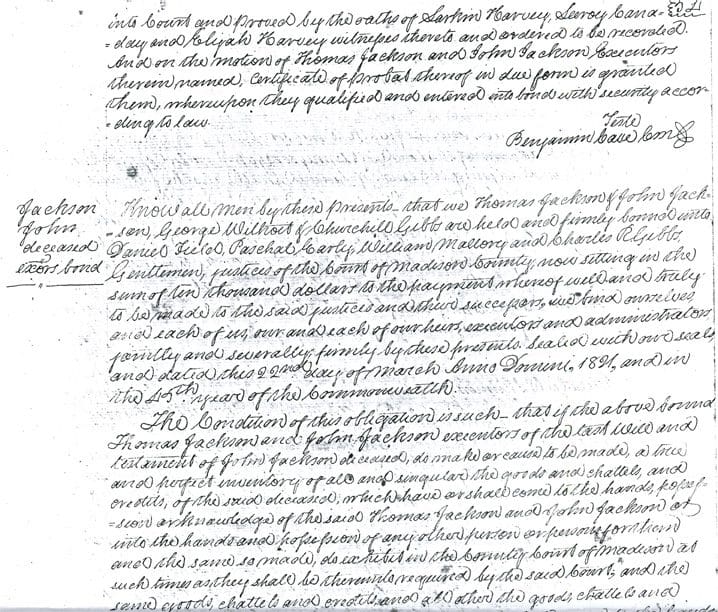 into Court and proved by the oaths of Larkin Harvey, Leroy Cana=
=day and Elijah Harvey witnesses thereto and ordered to be recorded.
And on the motion of Thomas Jackson and John Jackson, Executors
therein named, Certificate of Probat thereof in due form is granted
them, whereupon they qualified and entered into bond with security accor-
=ding to law.
Teste
Benjamin Cave
Jackson
John
deceased
excors bond
Know all men by these presents that we Thomas Jackson & John Jack-
=son, George Wilhoit & Churchill Gibbs are held and firmly bound unto
Daniel Field, Paschal Early, William Mallory and Charles P. Gibbs,
Gentlemen, justices of the Court of Madison County, now setting in the
sum of ten thousand dollars to the payment whereof well and truly
to be made to the said justices and their successors, we bind ourselves,
and each of us, our and each of our heirs, executors and administrators
jointly and severally firmly by these presents. Sealed with our seals
and dated this 22nd day of March Anno Domini, 1821, and in
the 45th year of the Commonwealth.
The Condition of this obligation is such that if the above bound
Thomas Jackson and John Jackson executors of the last will and
testament of John Jackson deceased, do make or cause to be made, a true
and perfect inventory of all and singular the goods and chattels, and
credits, of the said deceased, which have or shall come to the hands, posses-
=sion or knowledge of the said Thomas Jackson and John Jackson or
into the hands and possession of any other person or persons for them
and the same so made, do exhibit in the County Court of Madison at
such times as they shall be thereunto required by the said Court, and the
same goods, chattels and credits and all other the goods, chattels and